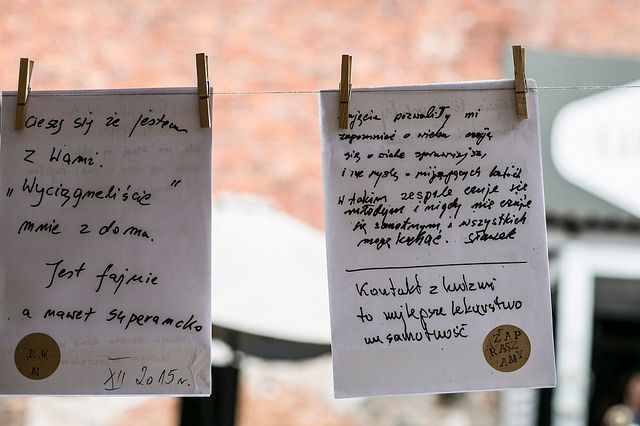 cieszę się że jestem
z Wami.
"Wyciągneliście"
mnie z domu.
Jest fajnie
a nawet superancko
R.W.
M
XII 2015 r.
zajęcia pozwoliły mi
zapomnieć o wieku czuję
się o wiele sprawniejsza,
i nie myślę o mijających latach
w takim zespole czuję się
młodym i nigdy nie czuję
się samotnym i wszystkich
mogę kochać. Sławek
Kontakt z ludzmi
to najlepsze lekarstwo
na samotność
ZAP
RASZ
AMY